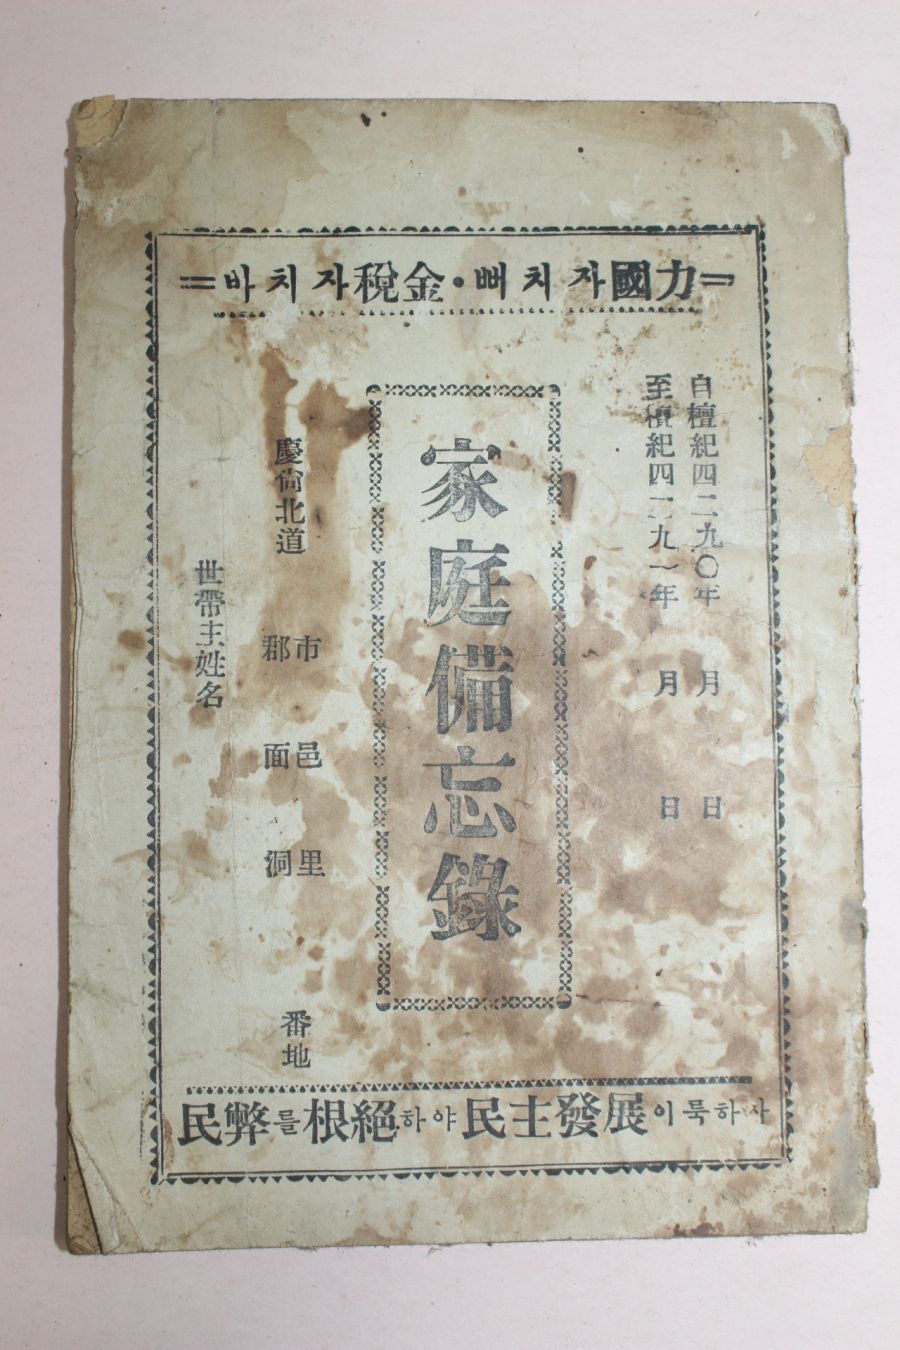 =바치자稅金·뻐치자國力=
自檀紀四二九〇年 月 日
至檀紀四二九一年 月 日
家庭備忘錄
慶尙北道 市郡 邑面 里洞 番地
世帶主姓名
民弊를根絕하야民主發展이룩하자